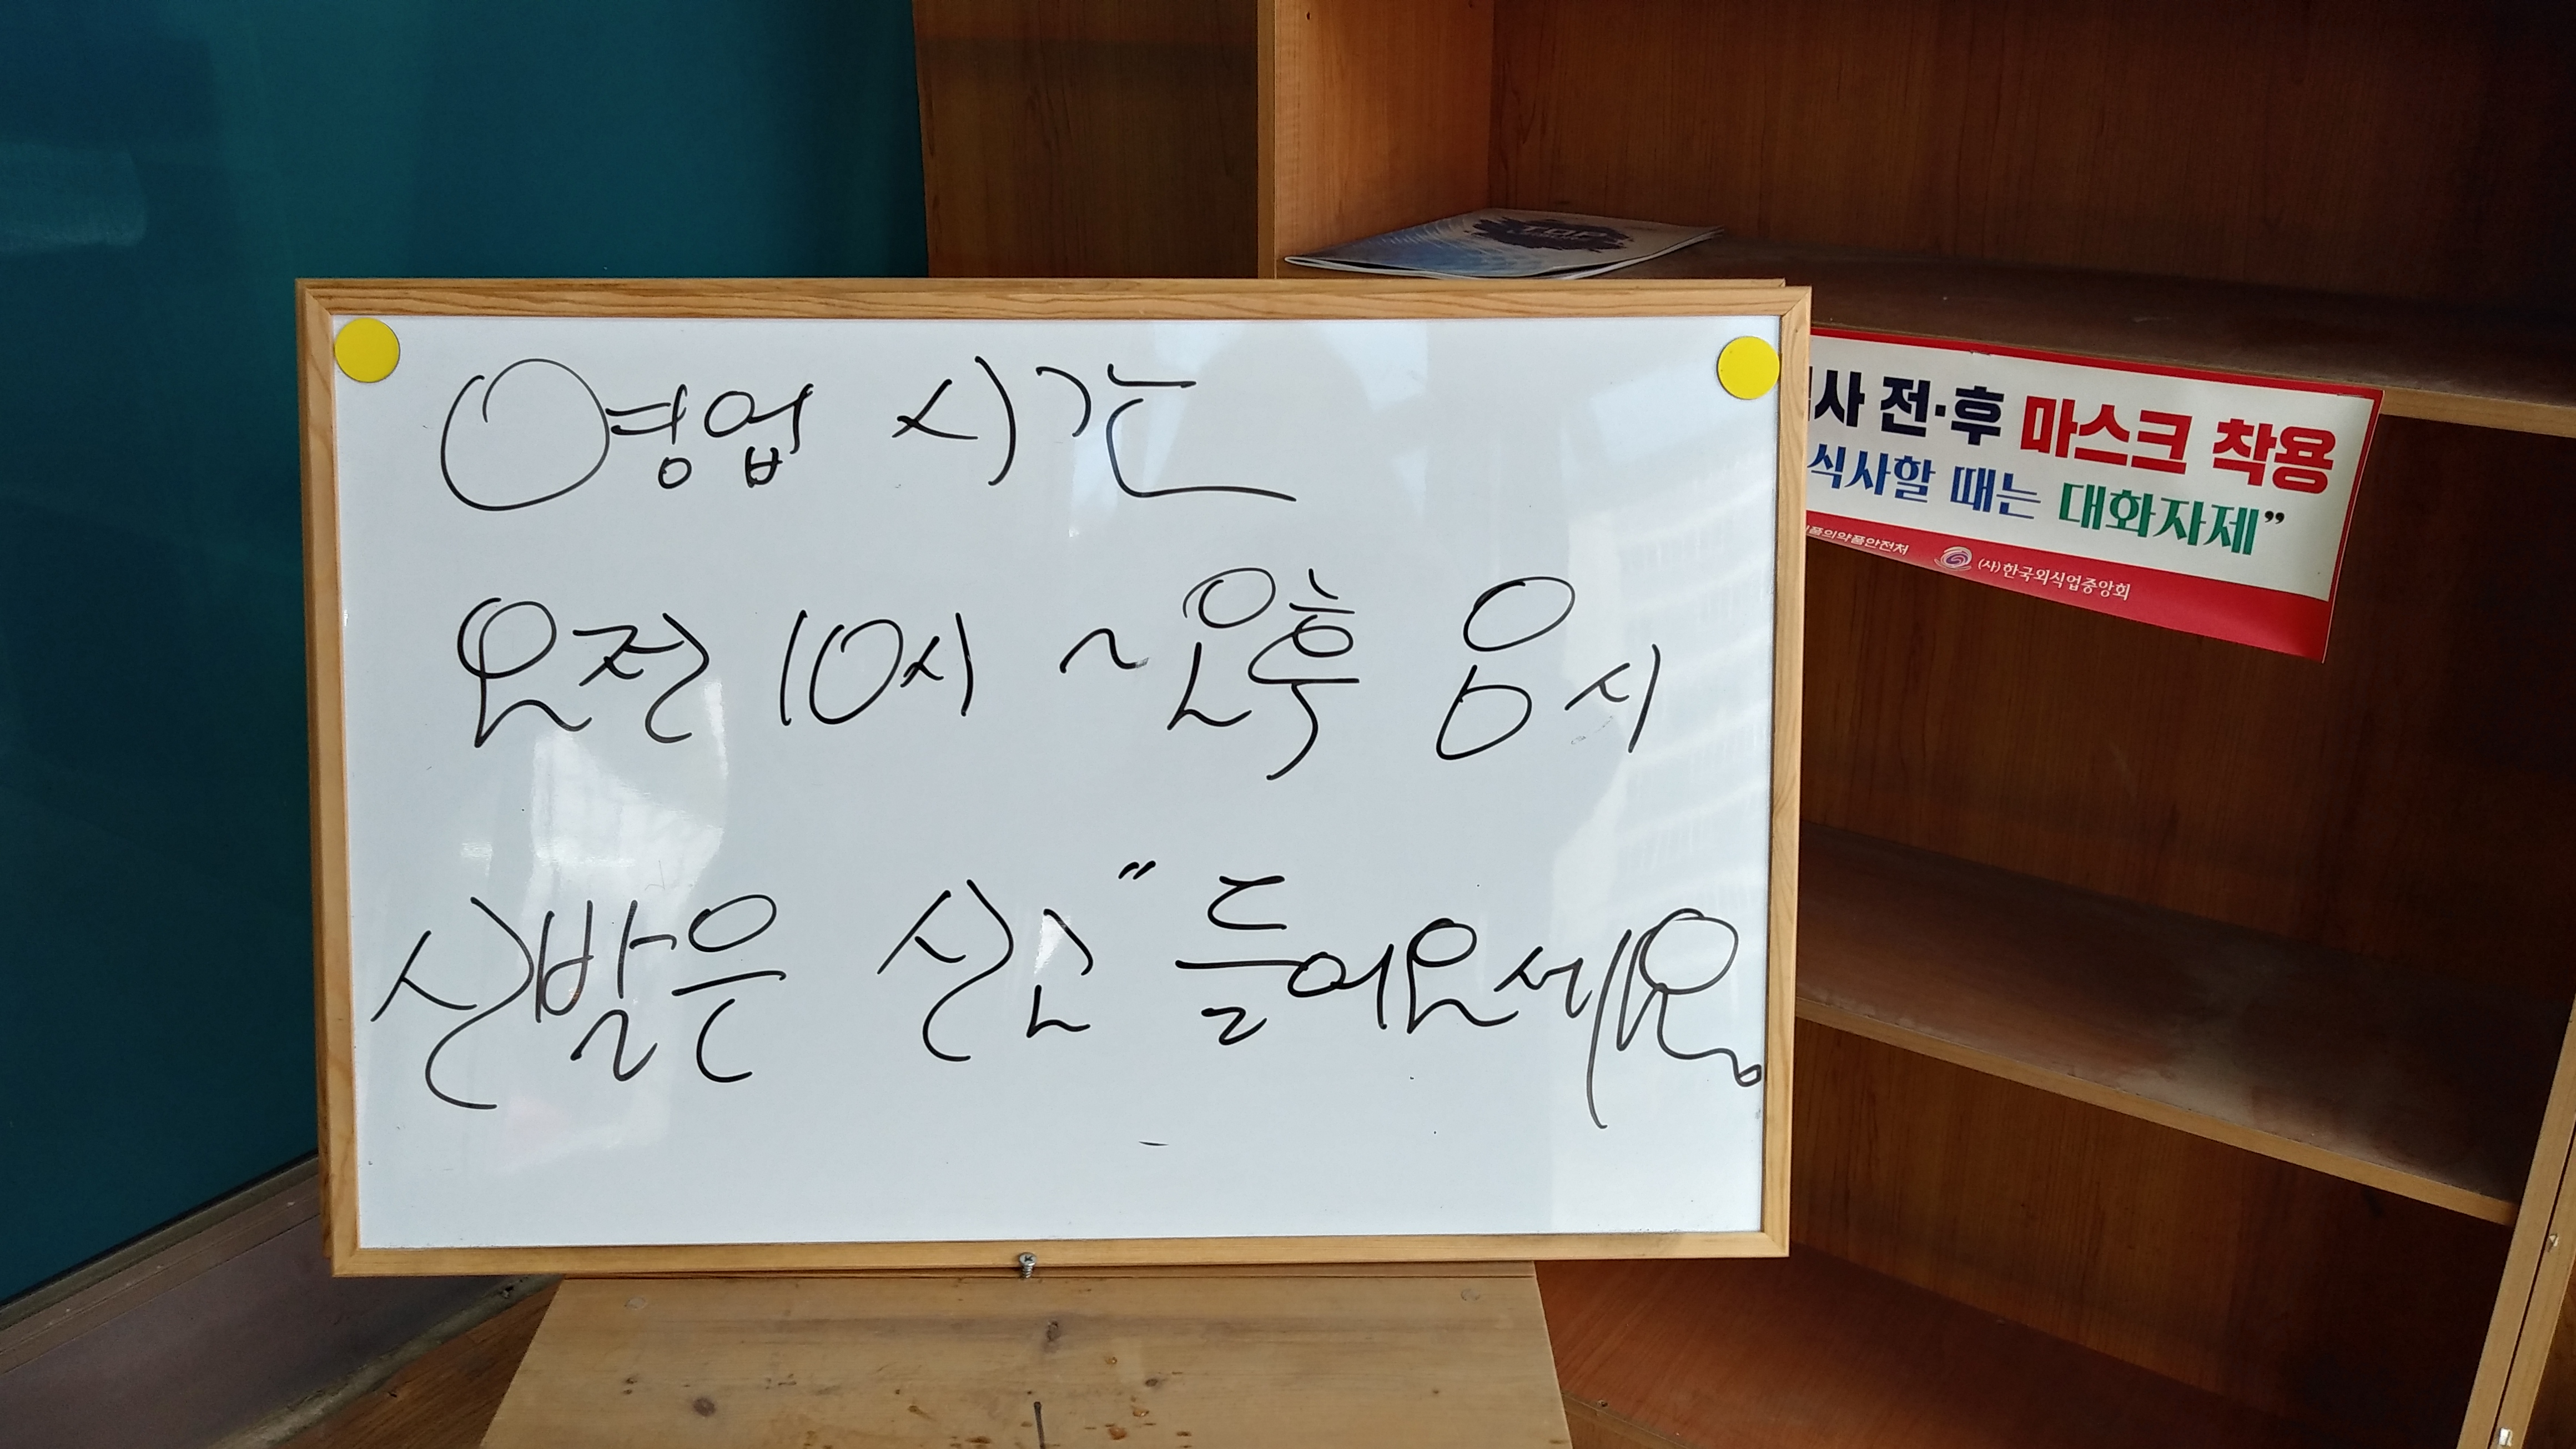 TOP
영업 시간
오전 10시 ~ 오후 8시
신발은 신고" 들어오세요.
사 전·후 마스크 착용
식사할 때는 대화자제”
품의약품안전처 (사)한국외식업중앙회